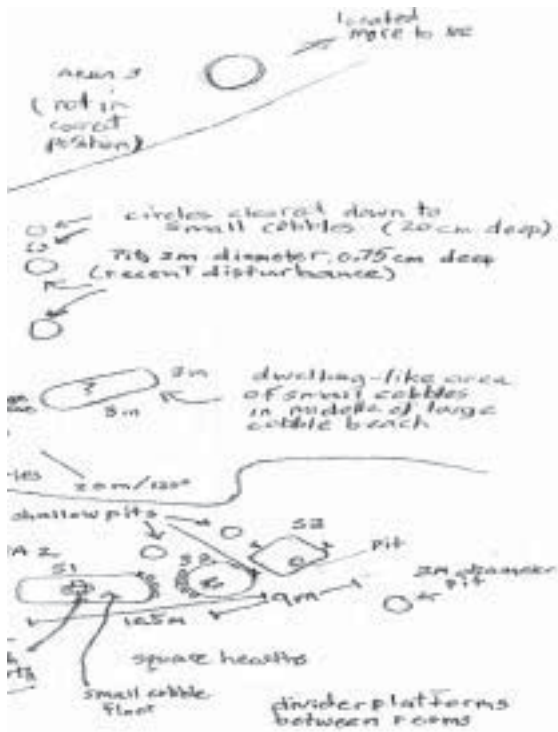 located
more to NE
Area 3
(not in
correct
position)
circles cleared down to
small cobbles (20cm deep)
Pits 2m diameter, 0.75cm deep
(recent disturbance)
?
2m
8m
dwelling-like area
of small cobbles
in middle of large
cobble beach
20m/120°
shallow pits
A 2
S1
S2
pit
2M diameter
pit
9m
16.5m
square hearths
small cobble
floor
divider platforms
between rooms